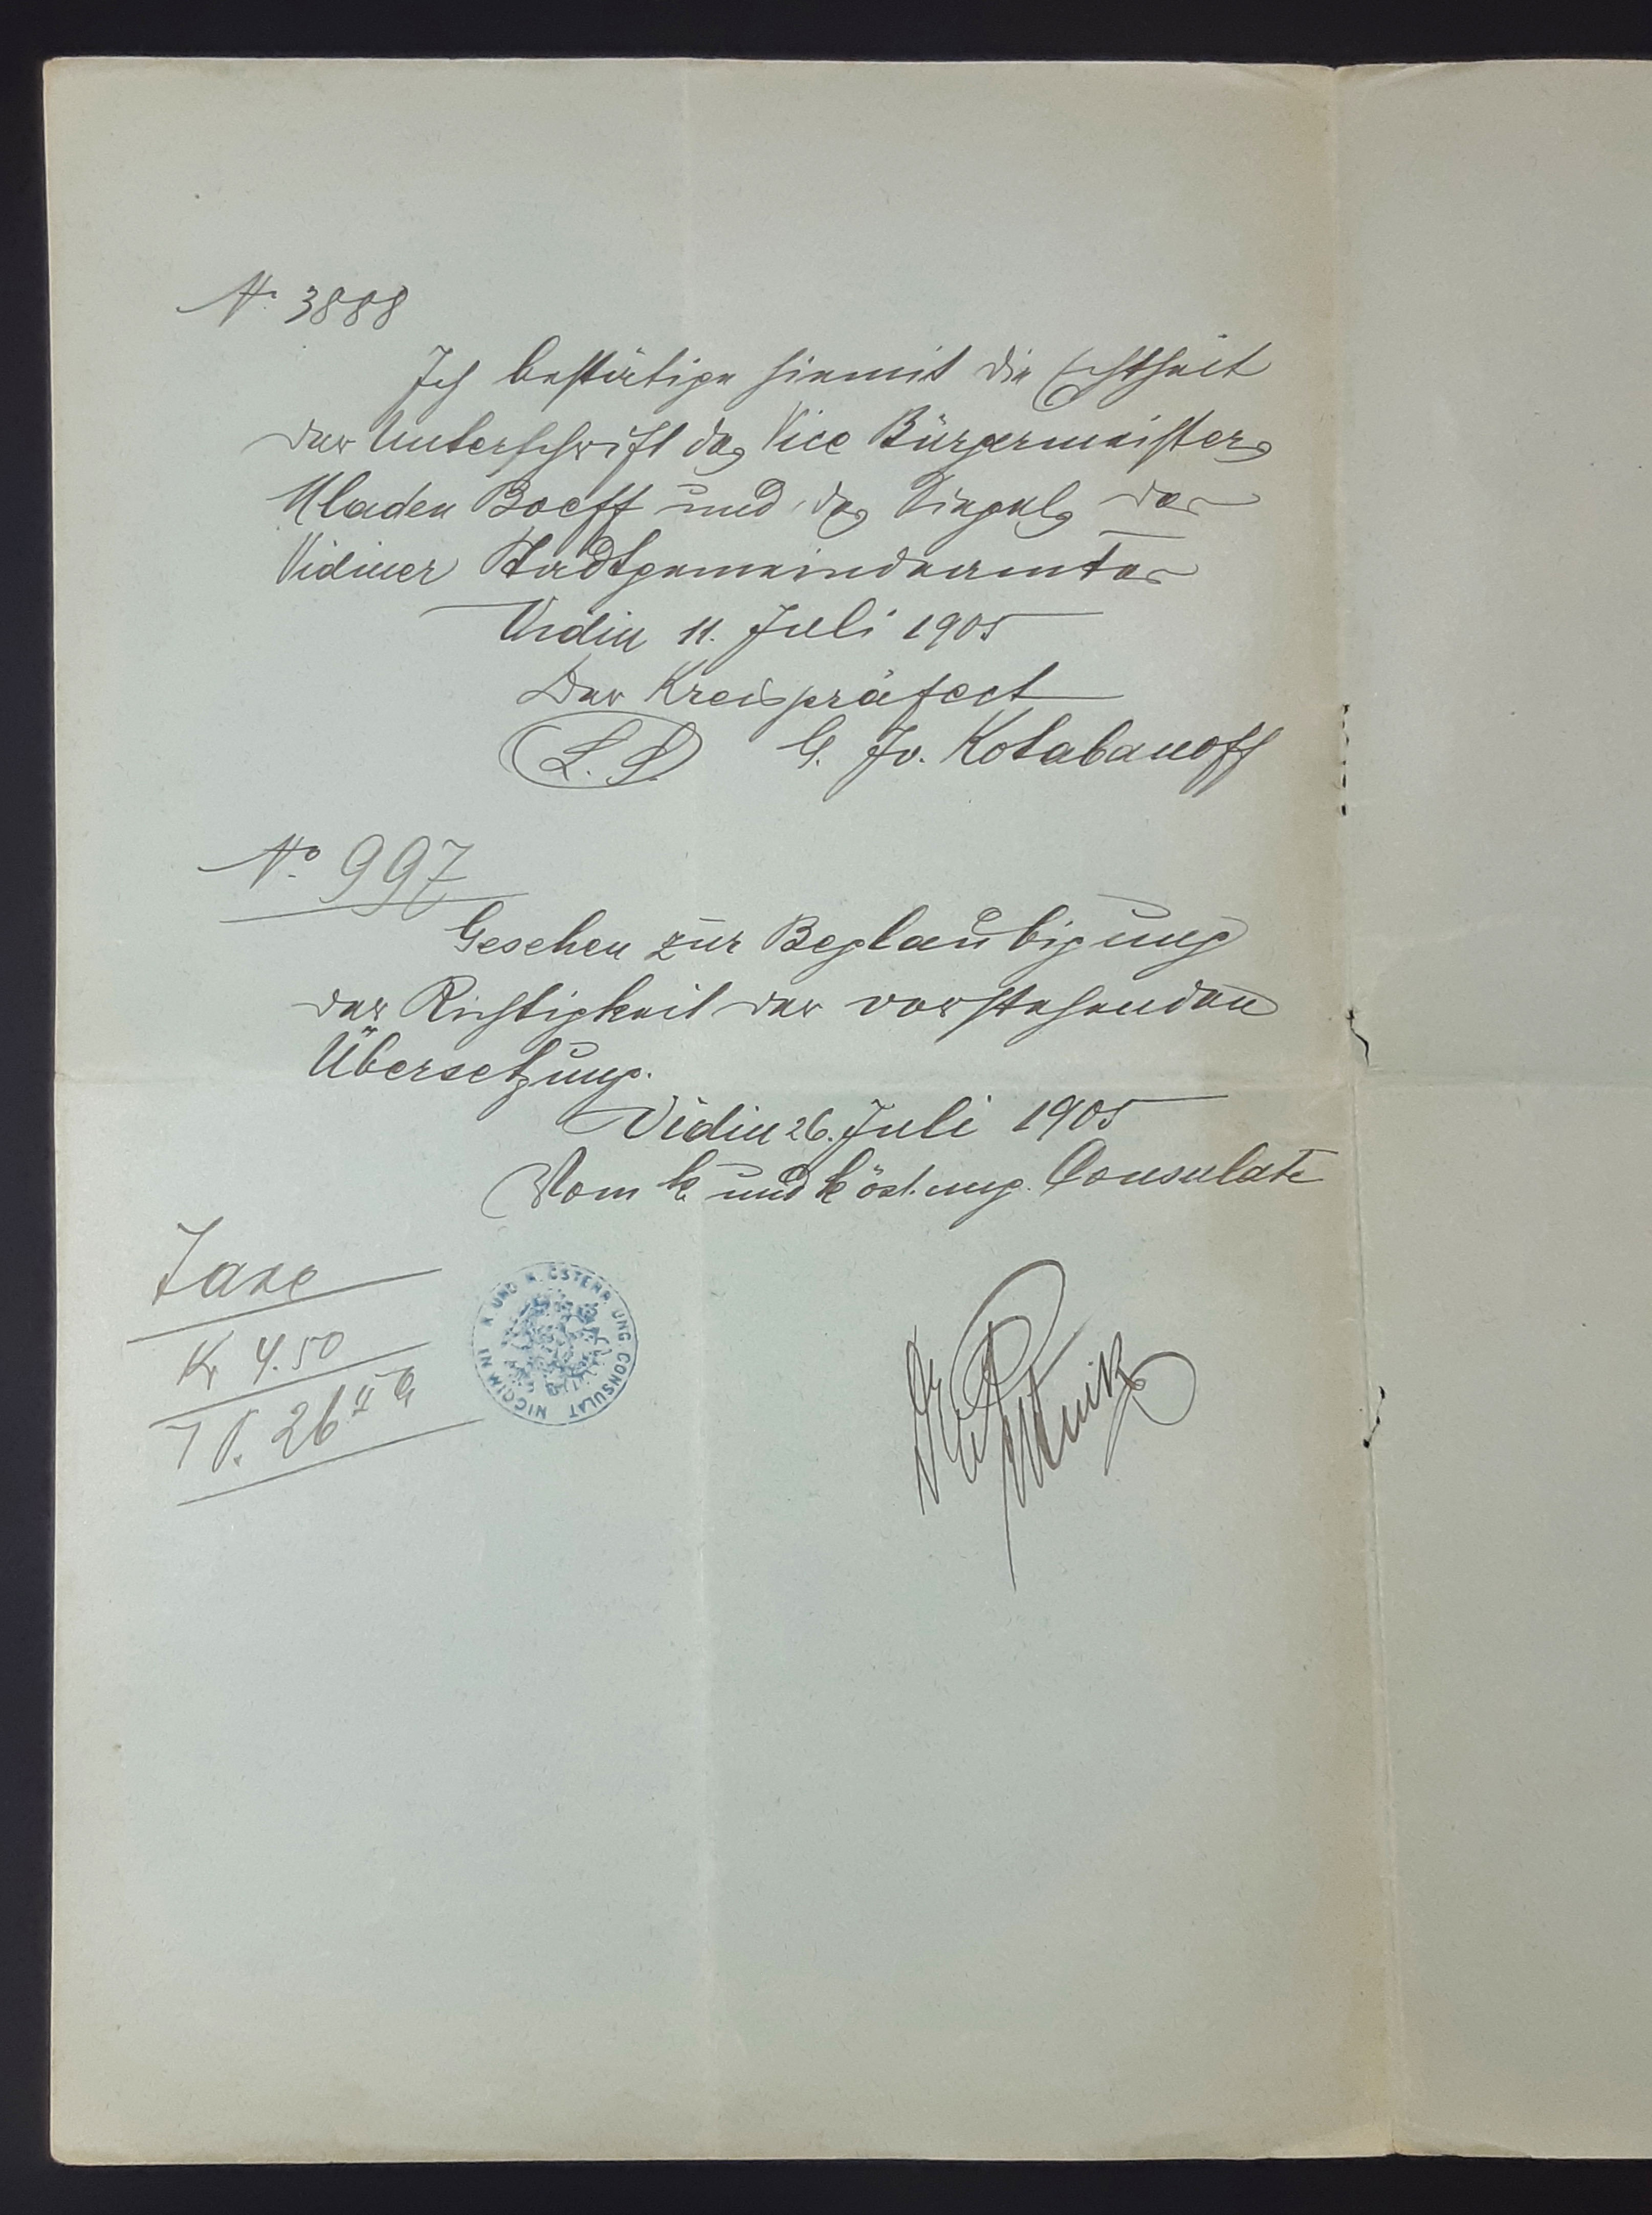 No 3888
Ich bestätige hiemit die Echtheit
der Unterschrift des Vice Bürgermeisters
Mladen Boeff und des Siegels der
Vidiner Stadtgemeindeamtes
Vidin 11. Juli 1905
Der Kreispräfect
L. S. G. Iv. Kotabanoff
No 997
Gesehen zur Beglaubigung
der Richtigkeit der vorstehenden
Übersetzung.
Vidin 26. Juli 1905
Vom k und k öst. ung. Consulate
Taxe
K 4.50
T P. 26
K. UND K. ÖSTERR. UNG CONSULAT IN WIDDIN